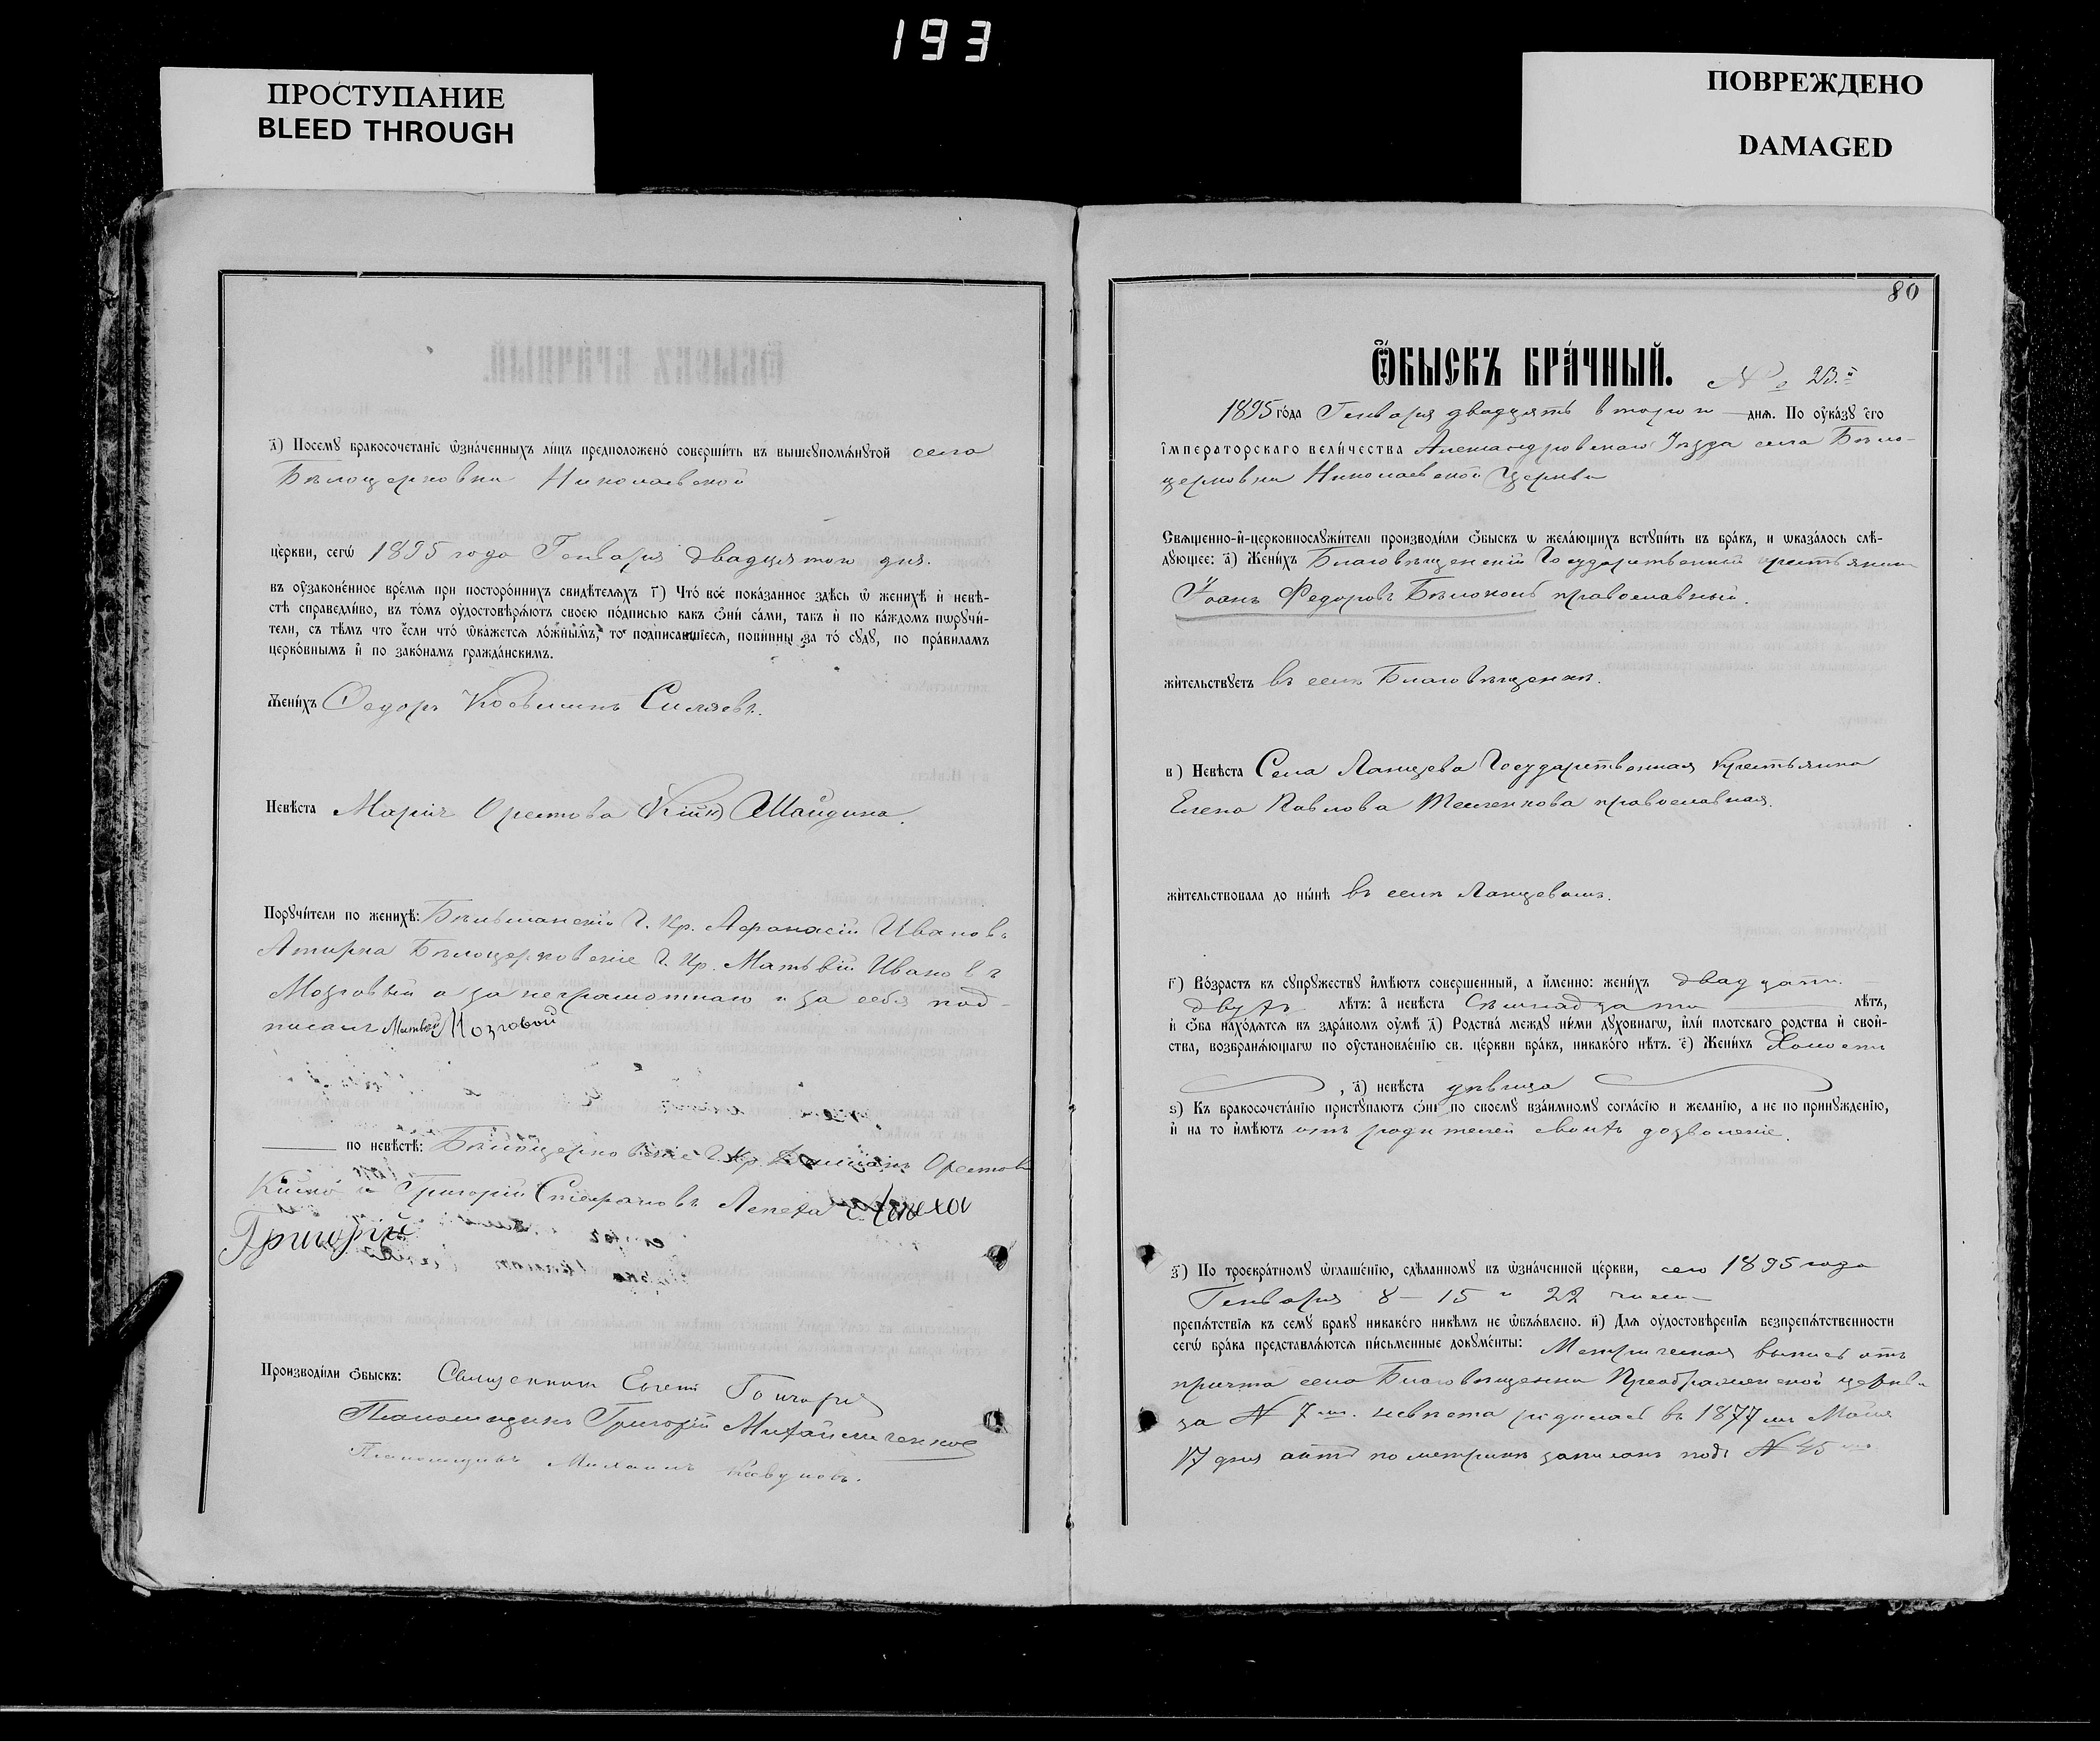 193
ПРОСТУПАНИЕ
BLEED THROUGH
ПОВРЕЖДЕНО
DAMAGED
д҃) Посемꙋ бракосочетанїе ѡзна́ченныхъ ли́цъ предположено́ соверши́ть въ вышеꙋпомѧ́нꙋтой села
Бѣлоцерковки Николаевской
це́ркви, сегѡ̀ 1895 года Генваря двадцатого дня.
въ ᲂу҆законе́нное вре́мѧ при посторо́ннихъ свидѣ́телѧхъ г҃) Что́ все́ пока́занное здѣ́сь ѡ҆ женихѣ̀ и҆ невѣ́-
стѣ справедли́во, въ то́мъ ᲂу҆достовѣрѧ́ютъ свое́ю по́дписью какъ ѻ҆ни́ са́ми, та́къ и҆ по ка́ждомъ пѡрꙋчи́-
тели, съ тѣ́мъ что є҆́сли что́ ѡ҆ка́жетсѧ ло́жнымъ, то подписавшїесѧ, пови́нны за то́ сꙋдꙋ̀, по пра́виламъ
церко́внымъ и҆ по зако́намъ гражда́нскимъ.
Жени́хъ Ѳедоръ Косьминъ Силаевъ.
Невѣ́ста Марія Орестова (Кійко) Шайдина.
Порꙋчи́тели по женихѣ̀: Бѣльманскій Г. Кр. Аѳанасій Ивановъ
Бѣлоцерковскіе Г. Кр. Матѳвій Ивановъ
Мозговый а за неграмотнаго и за себя под-
писалъ Матвѣй Мозговой
по невѣ́стѣ: Бѣлоцерковскіе Г. Кр. Орестовъ
Кійко и Григорій Стефановъ Лепеха Лепеха
Григорій
Производи́ли ѻ҆́быскъ: Священникъ Евгеній
Псаломщикъ Григорій Михайличенко
Псаломщикъ Михаилъ
80
Ѻ҆́БЫСКЪ БРА́ЧНЫЙ. № 23.й
1895 го́да Генваря двадцать втораго днѧ. По ᲂу҆ка́зꙋ є҆гѡ̀
і҆мпера́торскаго вели́чества Александровскаго Уѣзда села Бѣло-
церковки Николаевской Церкви
Свѧще́нно-и҆-церковнослꙋжи́тели производи́ли ѻ҆́быскъ ѡ҆ жела́ющихъ встꙋпи́ть въ бра́къ, и҆ ѡ҆каза́лось слѣ́-
дꙋющее: а҃) Жени́хъ Благовѣщенскій Государственный крестьянинъ
Іоанъ Федоровъ Бѣлоконь православный.
жи́тельствꙋетъ въ селѣ Благовѣщенкѣ.
в҃) Невѣ́ста Села Ланцева Государственная крестьянка
Елена Павлова православная.
жи́тельствовала до ны́нѣ въ селѣ Ланцевомъ.
г҃) Во́зрастъ къ сꙋпрꙋ́жествꙋ и҆мѣ́ютъ совершенный, а и҆́менно: жени́хъ двадцати
двухъ лѣ́тъ: а҆ невѣ́ста Сѣмнадцати лѣ́тъ,
и҆ ѻ҆́ба нахо́дѧтсѧ въ здра́вомъ ᲂу҆мѣ̀ д҃) Родства̀ междꙋ ни́ми дꙋхо́внагѡ, и҆лѝ пло́тскаго родства и҆ свой-
ства, возбранѧ́ющагѡ по ᲂу҆становле́нїю св. це́ркви бра́къ, никако́го нѣ́тъ. є҃) Жени́хъ Холостъ
, а҃) невѣ́ста дѣвица
ѕ҃) Къ бракосочета́нїю пристꙋпа́ютъ ѻ҆нѝ по своемꙋ̀ взаи́мномꙋ согла́сїю и҆ жела́нїю, а не по принꙋжде́нїю,
и҆ на то и҆мѣ́ютъ отъ родителей своихъ дозволеніе.
з҃) По троекра́тномꙋ ѡ҆глаше́нїю, сдѣ́ланномꙋ въ ѡ҆зна́ченной це́ркви, сего 1895 года
Генваря 8 – 15 и 22 числъ
препѧ́тствїѧ къ семꙋ̀ бра́кꙋ никако́го никѣ́мъ не ѡ҆б̾ѧ́влено. и҃) Длѧ ᲂу҆достовѣре́нїѧ безпрепѧ́тственности
сегѡ̀ бра́ка представлѧ́ютсѧ пи́сьменные докꙋме́нты: Метрическая выпись отъ
причта села Благовѣщенки Преображенской церкви
за № 7 мъ. невѣста родилась въ 1877 мъ Мая
17 дня актъ по метрикѣ записанъ подъ № 45